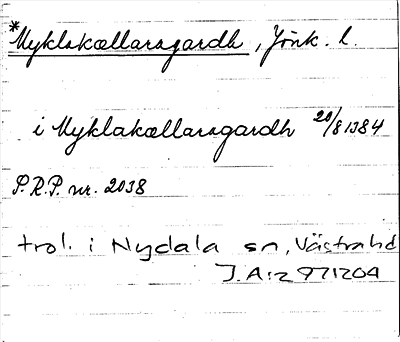 *Myklakællaragardh, Jönk. l.
i Myklakællaragardh 20/8 1384
P.R.P. nr. 2038
trol. i Nydala sn, Västra hd
J.A:z 971204